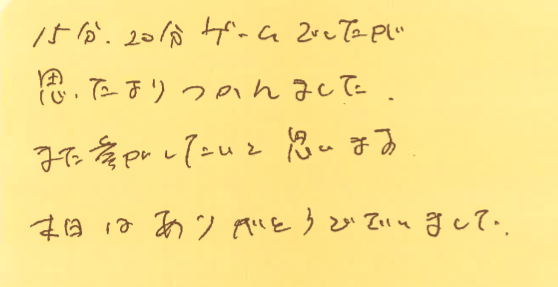 15分.20分ゲームでしたが
思ったよりつかれました.
また参加したいと思います
本日はありがとうございました.